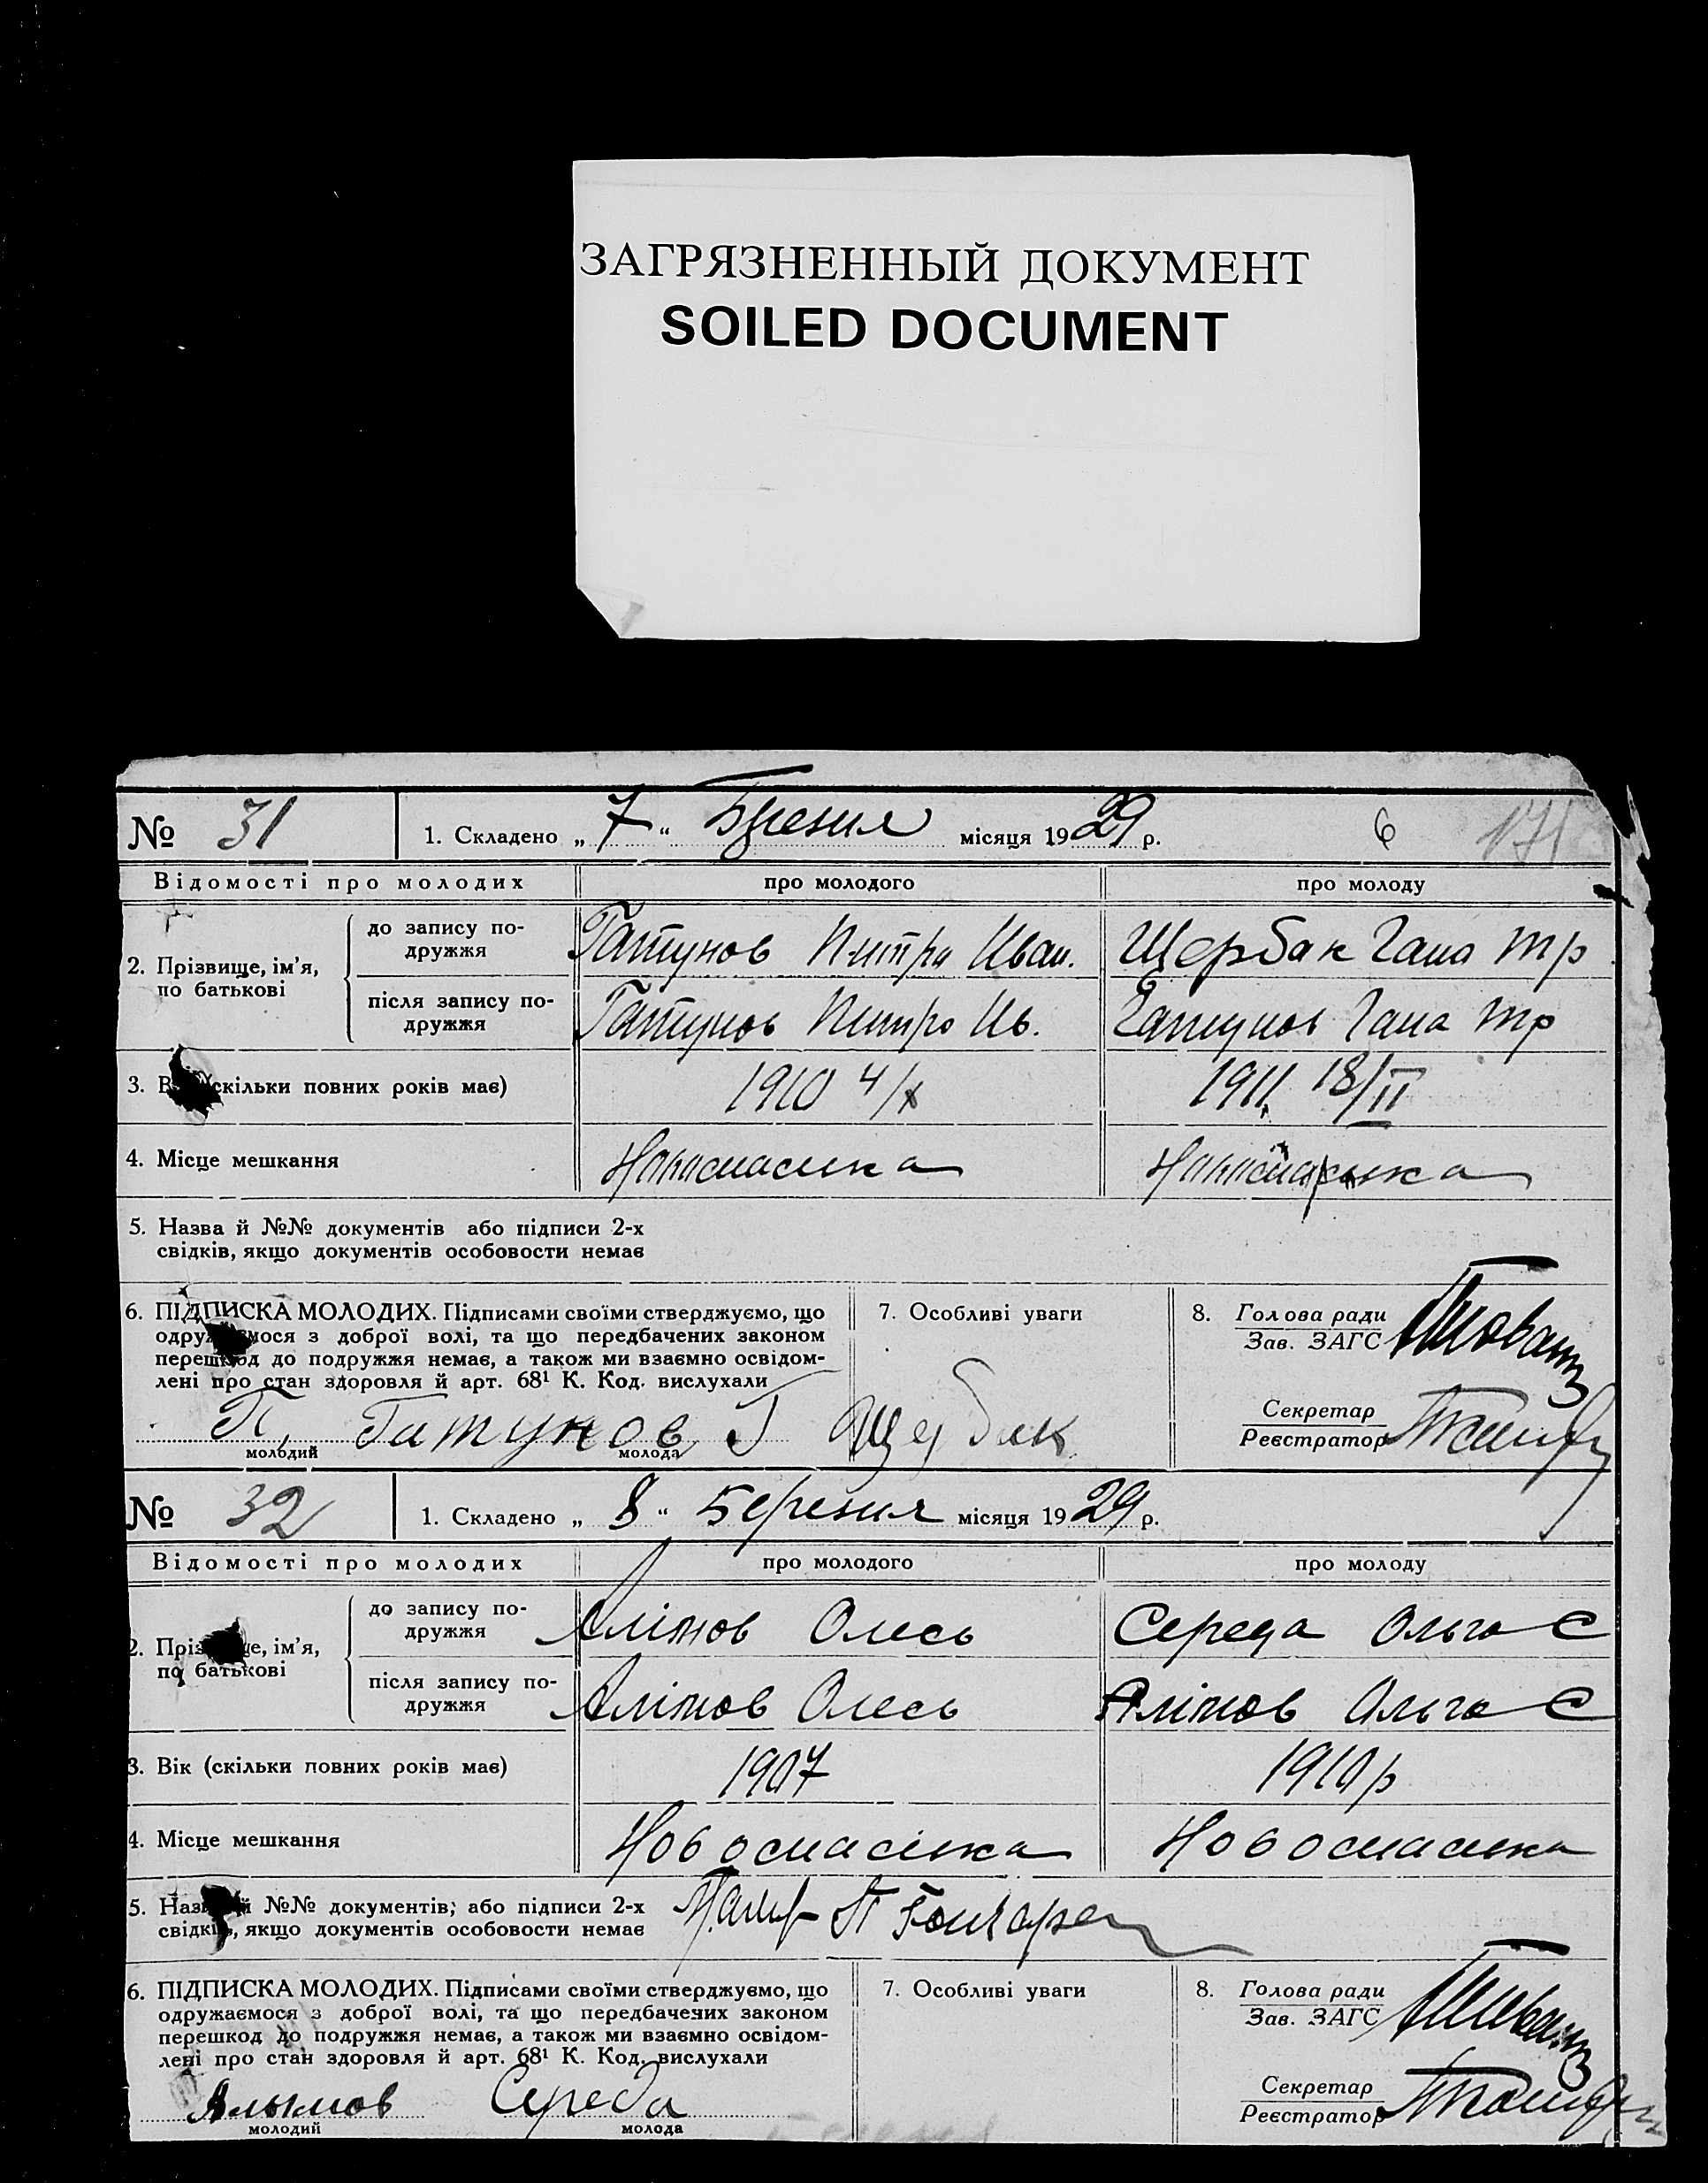 ЗАГРЯЗНЕННЫЙ ДОКУМЕНТ
SOILED DOCUMENT
№ 31 1. Складено „ 7 “ Березня місяця 1929 р. 6 171
Відомості про молодих про молодого про молоду
2. Прізвище, ім’я, по батькові
до запису подружжя Гатунов Питро Иван. Щербак Гана Тр
після запису подружжя Гатунов Питро Ив. Гатунов Гана Тр
3. В (скільки повних років має) 1910 4/X 1911 18/II
4. Місце мешкання Новоспаська
5. Назва й №№ документів або підписи 2-х
свідків, якщо документів особовости немає
6. ПІДПИСКА МОЛОДИХ. Підписами своїми стверджуємо, що 7. Особливі уваги 8. Голова ради
одружаємося з доброї волі, та що передбачених законом Зав. ЗАГС
перешкод до подружжя немає, а також ми взаємно освідом-
лені про стан здоровля й арт. 68¹ К. Код. вислухали
Секретар
Реєстратор
П. Гатунов Г Щербак
молодий молода
№ 32 1. Складено „ 8 “ Березня місяця 1929 р.
Відомості про молодих про молодого про молоду
2. Прізвище, ім’я, по батькові
до запису подружжя Алімов Олесь Середа Ольга Є
після запису подружжя Алімов Олесь Алімов Ольга Є
3. Вік (скільки повних років має) 1907 1910 р
4. Місце мешкання Новоспаська Новоспаська
5. Назва й №№ документів; або підписи 2-х П Гончарен
свідків, якщо документів особовости немає
6. ПІДПИСКА МОЛОДИХ. Підписами своїми стверджуємо, що 7. Особливі уваги 8. Голова ради
одружаємося з доброї волі, та що передбачених законом Зав. ЗАГС
перешкод до подружжя немає, а також ми взаємно освідом-
лені про стан здоровля й арт. 68¹ К. Код. вислухали
Секретар
Реєстратор
Алымов Середа
молодий молода